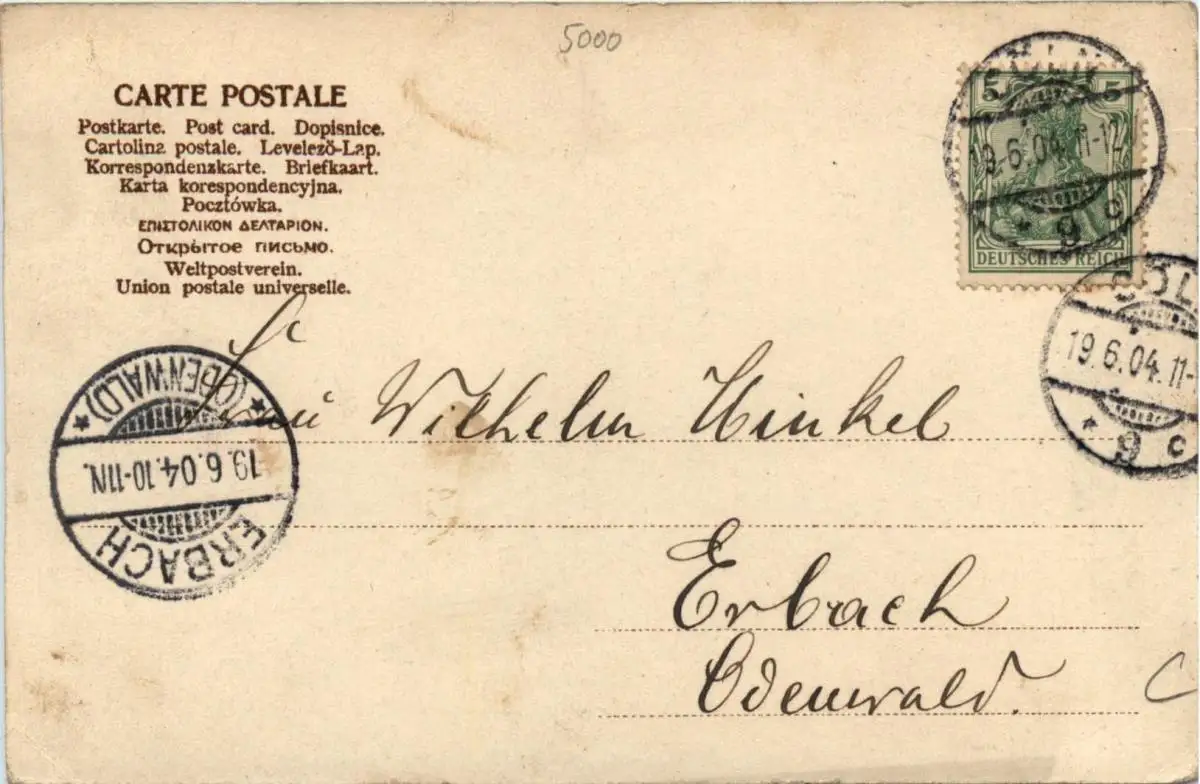 5000
CARTE POSTALE
Postkarte. Post card. Dopisnice.
Cartolina postale. Levelező-Lap.
Korrespondenzkarte. Briefkaart.
Karta korespondencyjna.
Pocztówka.
ΕΠΙΣΤΟΛΙΚΟΝ ΔΕΛΤΑΡΙΟΝ.
Открытое письмо.
Weltpostverein.
Union postale universelle.
5 5
DEUTSCHES REICH
CÖLN
19.6.04.11-12
* 9 c
CÖL
19.6.04.11-
* 9 c
Frau Wilhelm Hinkel
Erbach
Odenwald.
ERBACH
19.6.04.10-11N.
* (ODENWALD) *
C